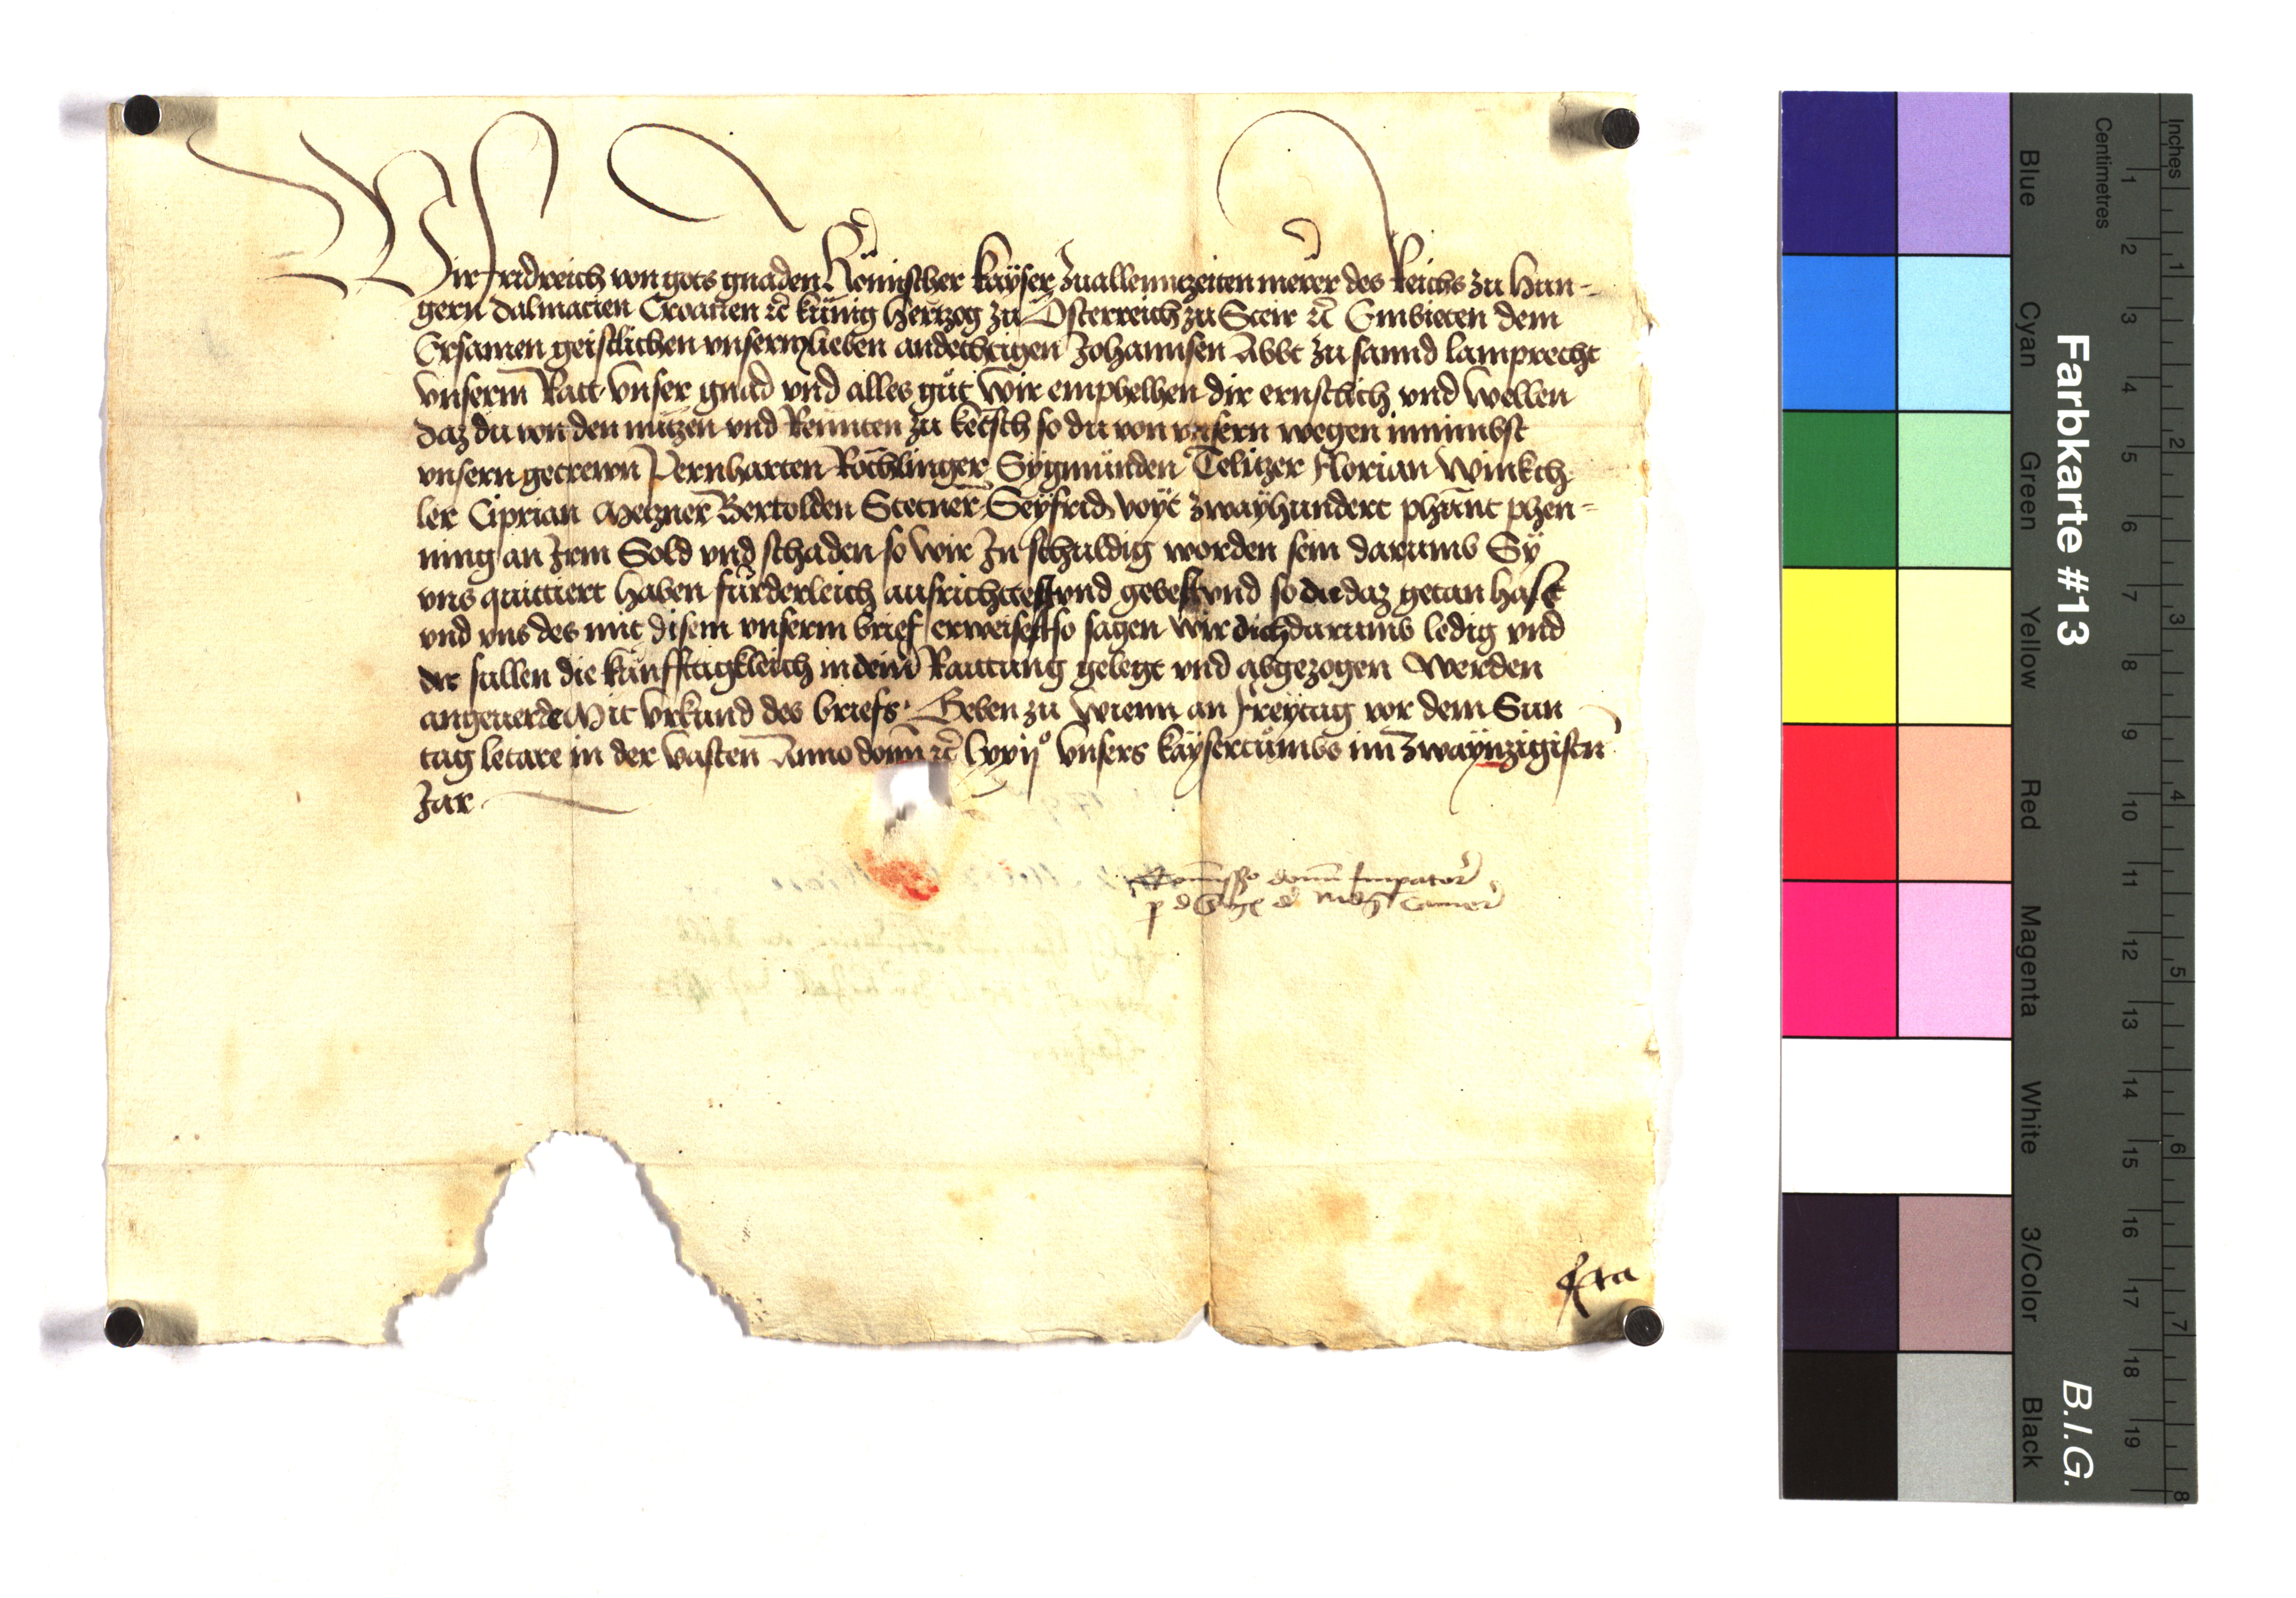 Wir Fridreich von gots gnaden Römischer kayser zuallenntzeiten merer des Reichs zu Hun-
gern Dalmacien Croacien etc künig Hertzog zu Österreich zu Steir etc Embieten dem
Ersamen geistlichen unserm lieben andechtigen Johannsen Abbt zu sannd Lamprecht
unserm Ratt unser gnad und alles gut wir emphelhen dir ernstlich und wellen
daz du von den nutzen und Rennten zu ketsch so du von unsern wegen innimbst
unsern getrewn Pernharten Röchlinger Sygmunden Telitzer Florian Winkch
ler Ciprian Metzner Bertolden Stetner Seyfrid Voyt zwayhundert phunt phen-
ning an Irm Sold und schaden so wir In schuldig worden sein darumb Sy
uns quittiert haben fürderleich ausrichttest und gebest und so du daz getan hast
und uns des mit disem unserm brief erweisest so sagen wir dich darumb ledig und
dir sullen die kunfftigkleich in deiner Raittung gelegt und abgezogen werden
angeuerde Mit Urkund des briefs Geben zu Wienn an Freytag vor dem Sun
tag letare in der vasten Anno domini etc lxxij° Unsers kaysertumbs im zwaynzigisten
Jar
Commissio domini Imperatoris
p d camer
Blue
Cyan
Green
Yellow
Red
Magenta
White
3/Color
Black
Farbkarte #13
B.I.G.
Centimetres
1 2 3 4 5 6 7 8 9 10 11 12 13 14 15 16 17 18 19
Inches
1 2 3 4 5 6 7 8